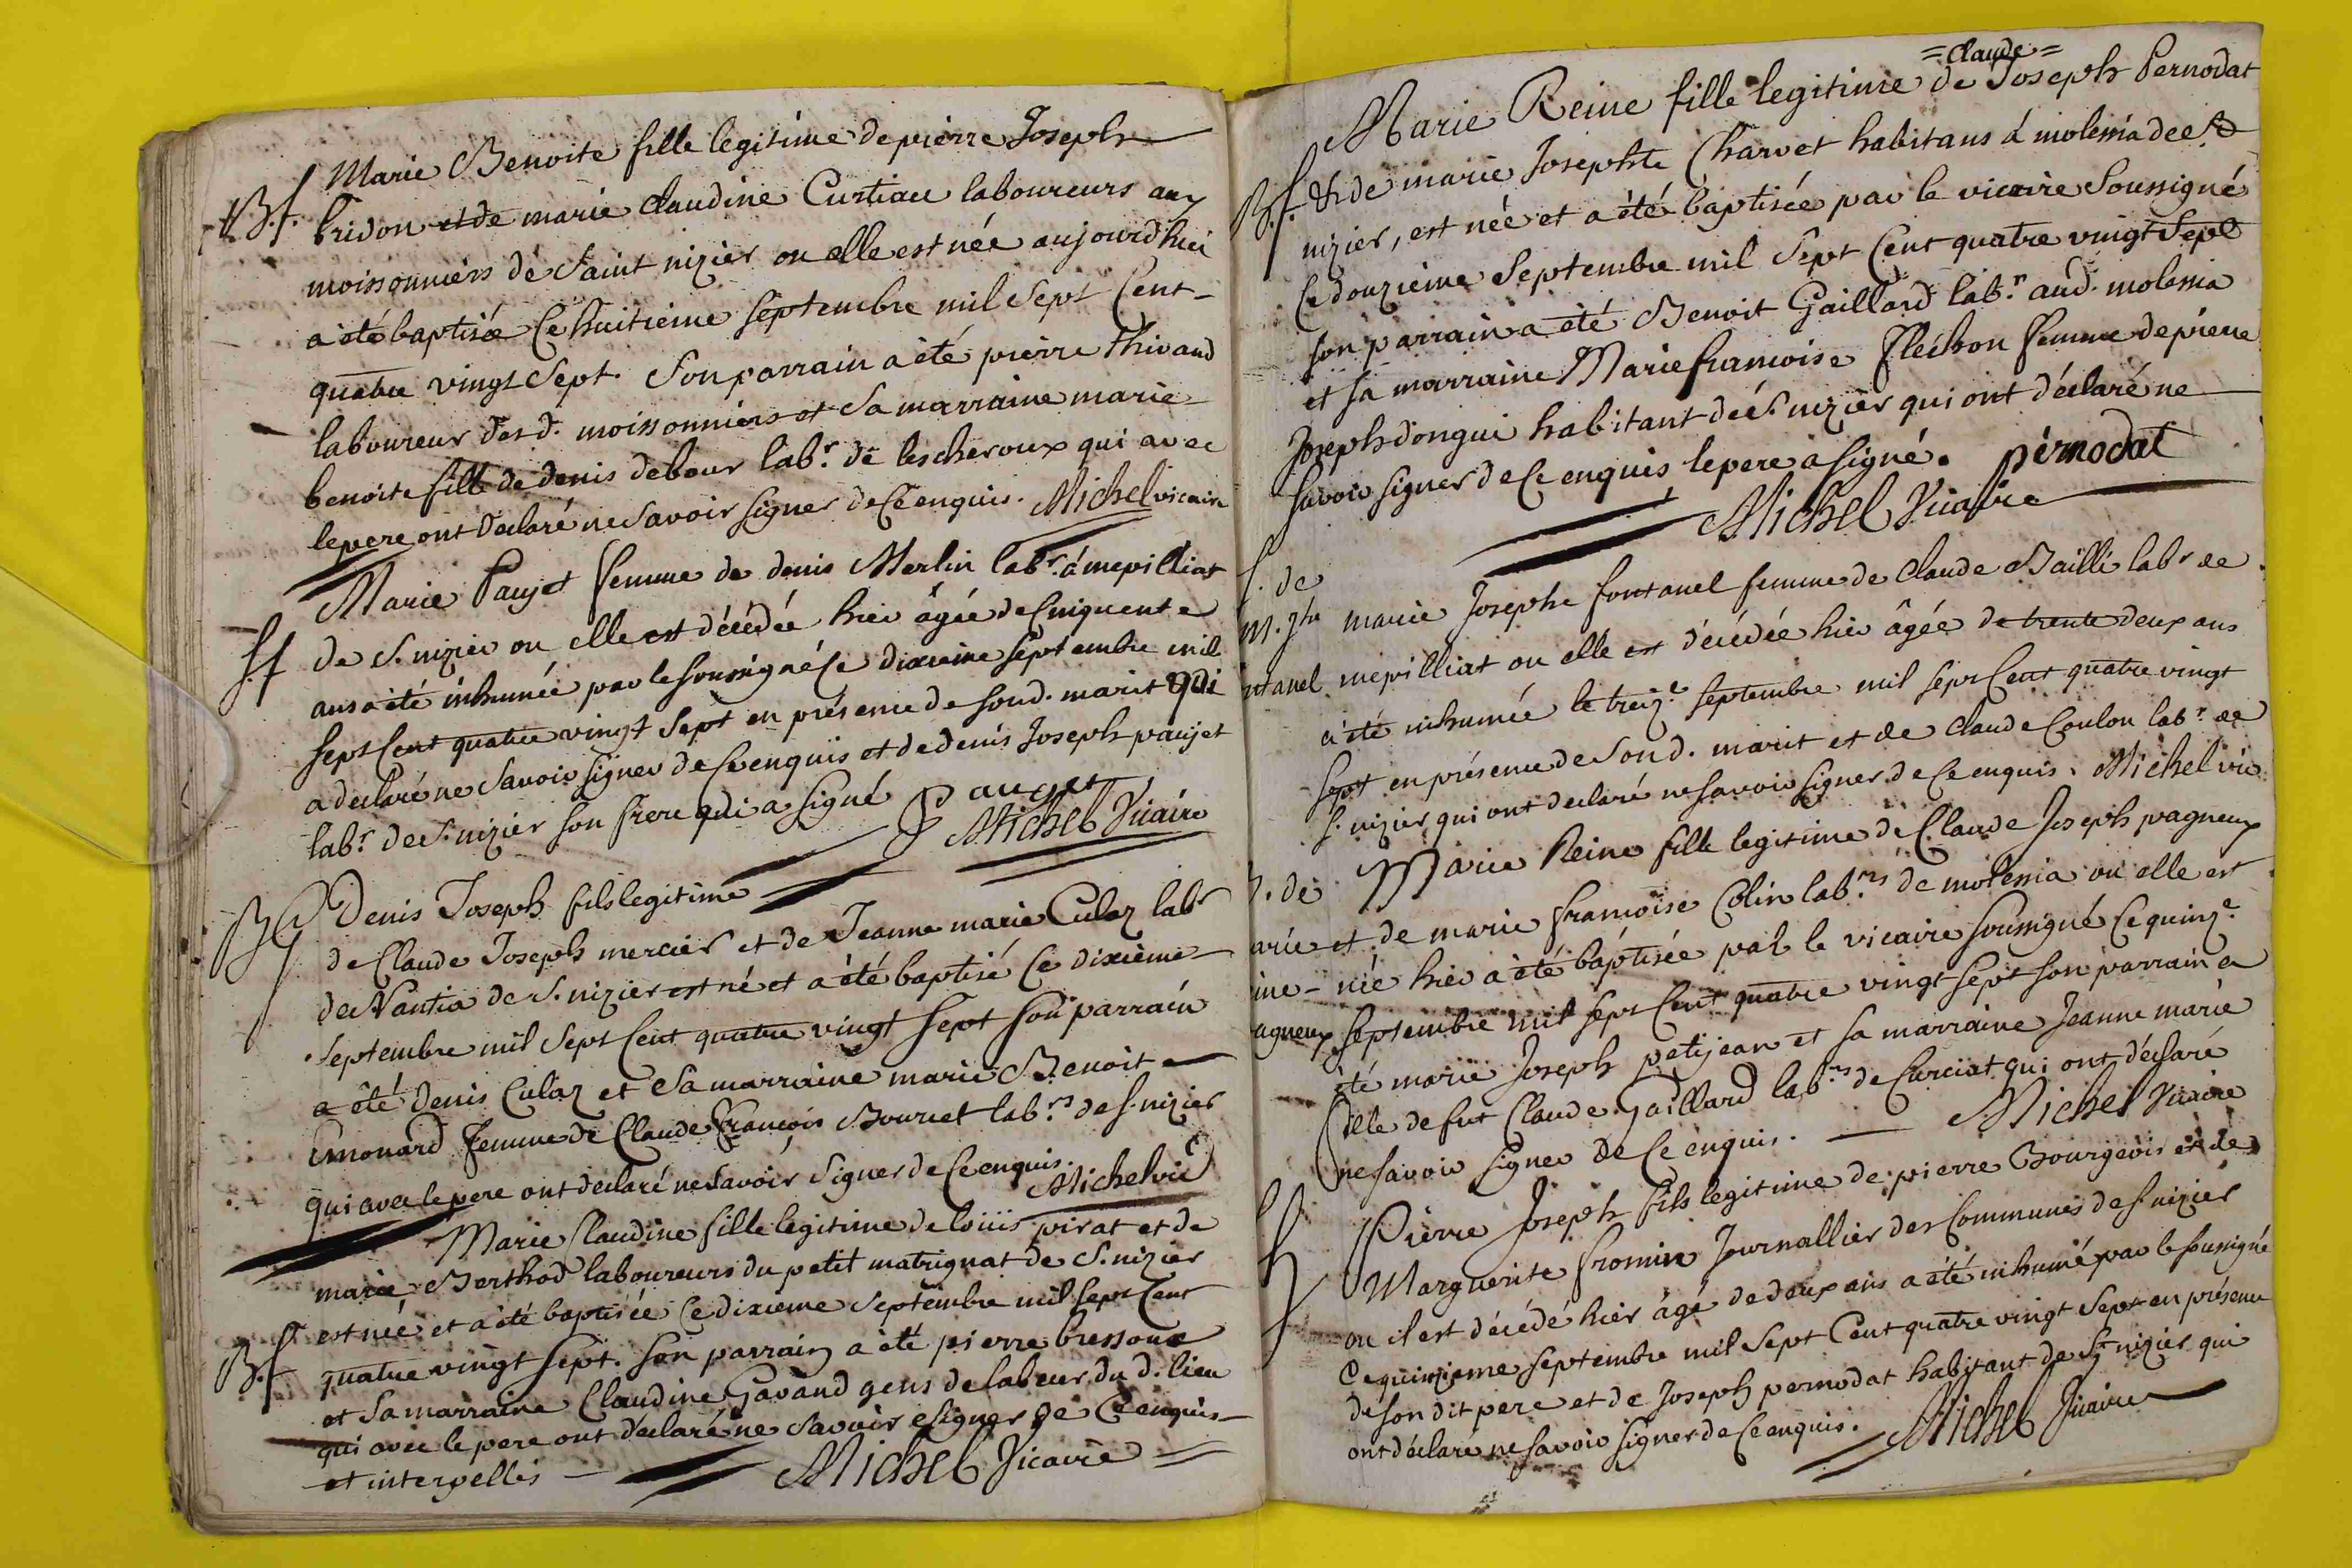 Marie Benoite fille legitime de pierre Joseph
B.f. bridon et de marie claudine Curtiau laboureurs aux
moissonniers de Saint nizier ou elle est née aujourd'hui
a été baptisée Ce huitieme septembre mil Sept Cent
quatre vingt Sept. Son parrain a été pierre Thivaud
laboureur desd. moissonniers et Sa marraine marie
benoite fille de denis debour labr. de lescheroux qui avec
le pere ont declaré ne Savoir signer de Ce enquis. Michel vicaire
Marie Paujet femme de denis Merlin labr. a mepilliat
S.f de S. nizier ou elle est décédée hier âgée de Cinquente
ans a été inhumée par le soussigné Ce dixieme septembre mil
sept Cent quatre vingt Sept en présence de Sond. marit qui
a declaré ne Savoir signer de Ce enquis et de denis Joseph paujet
labr. de S. nizier son frere qui a signé Pauget
Michel Vicaire
B G Denis Joseph fils legitime
de Claude Joseph mercier et de Jeanne marie Culaz labr
de Nantia de S. nizier est né et a été baptisé Ce dixième
septembre mil Sept Cent quatre vingt Sept son parrain
a été Denis Culaz et Sa marraine marie Benoit
Emonard femme de Claude François Bourcet labrs. de S. nizier
qui avec le pere ont declaré ne Savoir Signer de Ce enquis.
Michel vic
Marie Claudine fille legitime de loüis pirat et de
marie Berthod laboureurs du petit matrignat de S. nizier
B.f est née et a été baptisée Ce dixieme septembre mil sept Cent
quatre vingt sept. Son parrain a été pierre bressoux
et Sa marraine Claudine Gavand gens de labeur du d. lieu
qui avec le pere ont déclaré ne Savoir signer de Ce enquis
et interpellés Michel Vicaire
=Claude=
Marie Reine fille legitime de Joseph Pernodat
B.f. & de marie Josephte Charvet habitans á molenia de St
nizier, est née et a été baptisée par le vicaire Soussigné
Ce douzieme Septembre mil Sept Cent quatre vingt Sept
son parrain a été Benoit Gaillard labr. aud. molenia
et sa marraine Marie francoise Flechon femme de pierre
Joseph dongui habitant de S. nizier qui ont déclaré ne
Savoir signer de Ce enquis, le pere a signé. pernodat
Michel Vicaire
S. de
m. jhe marie Josephe fontanel femme de Claude Bailli labr de
ntanel mepilliat ou elle est décédée hier âgée de trente deux ans
a été inhumée le treize septembre mil sept Cent quatre vingt
Sept en présence de Son d. marit et de Claude Coulon labr. de
S. nizier qui ont declaré ne savoir signer de Ce enquis. Michel vic
B. de Marie Reine fille legitime de Claude Joseph pagneux
arie et de marie françoise Colin labrs. de molenia ou elle est
ine- née hier a été baptisée par le vicaire soussigné Ce quinze
agneux septembre mil sept Cent quatre vingt sept son parrain a
été marie Joseph petijean et sa marraine Jeanne marie
fille de fut Claude Gaillard labrs. de Curciat qui ont déclaré
ne savoir signer de Ce enquis. Michel Vicaire
Pierre Joseph fils legitime de pierre Bourgeois et de
Marguerite fromin Journallier des Communes de S. nizier
ou il est décédé hier âgé de deux ans a été inhumé par le soussigné
Ce quinzieme septembre mil Sept Cent quatre vingt Sept en présence
de son dit pere et de Joseph pernodat habitant de St nizier qui
ont déclaré ne savoir signer de Ce enquis. Michel Vicaire